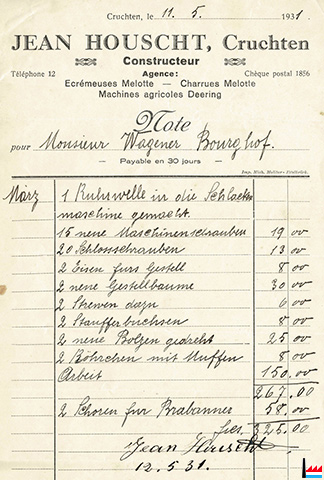 Cruchten, le 11. 5. 1931.
JEAN HOUSCHT, Cruchten
Constructeur
Téléphone 12 Agence: Chèque postal 1856
Ecrémeuses Melotte — Charrues Melotte
Machines agricoles Deering
Note
pour Monsieur Wagener Bourghof.
— Payable en 30 jours —
März 1 Ruhrwelle in die
maschine gemacht.
15 neue Maschinenschrauben 19 00
20 Schlosschrauben 13 00
2 Eisen furs Gestell 8 00
2 neue Gestellbaume 30 00
2 Strewen dazu 6 00
2 Staufferbuchsen 8 00
2 neue Bolzen gedreht 25 00
2 Röhrchen mit Muffen 8 00
Arbeit 150.00
267.00
2 Schoren fur Brabanner 58.00
frs. 325.00
Jean Houscht
12.5.31.